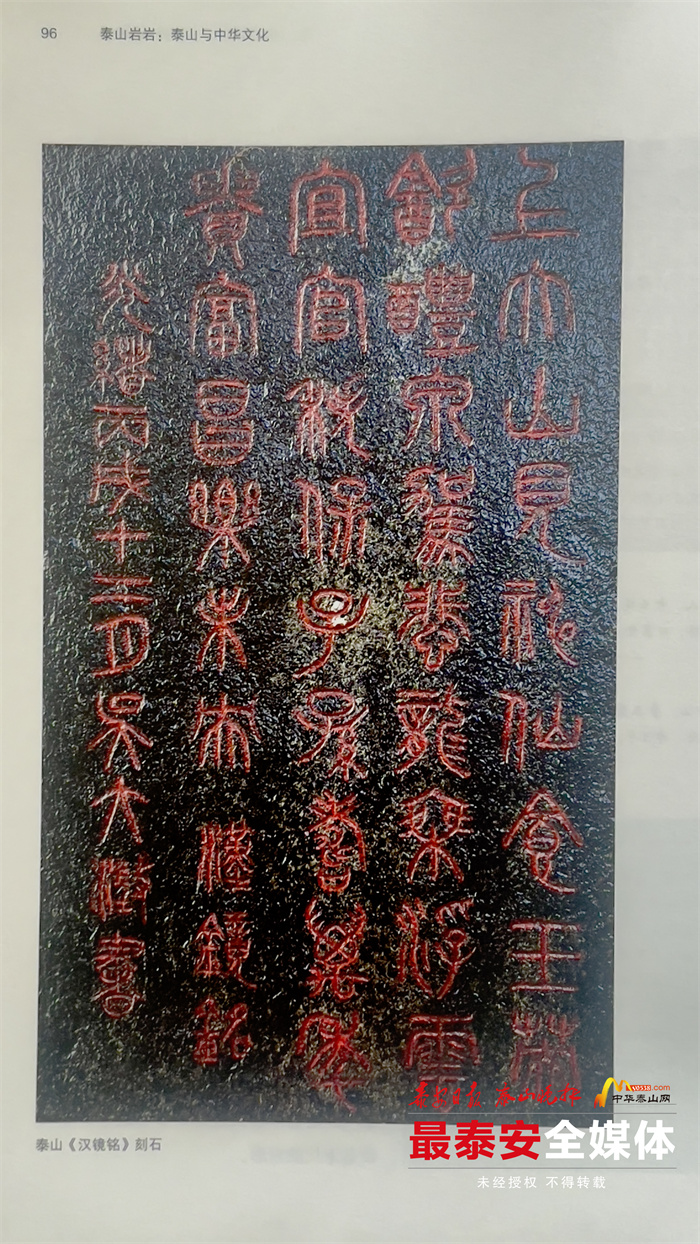 96 泰山岩岩：泰山与中华文化
上大山見神仙食玉英
飲醴泉駕蜚龍乘浮雲
宜官秩保子孫壽萬年
貴富昌樂未央 漢鏡銘
光緒丙戌十二月吳大澂書
泰山《汉镜铭》刻石
泰安日报 泰山晚报
0538.com
中华泰山网
最泰安全媒体
未经授权 不得转载